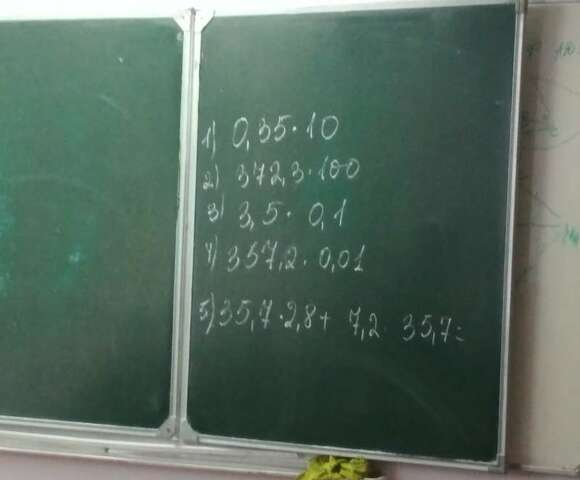 1) 0,35 · 10
2) 372,3 · 100
3) 3,5 · 0,1
4) 357,2 · 0,01
5) 35,7 · 2,8 + 7,2 35,7 =